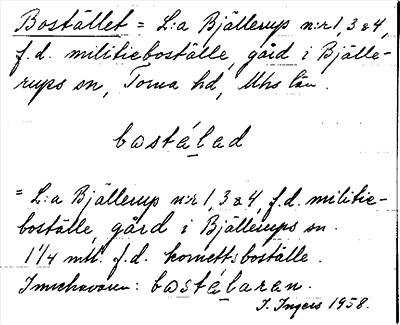 Bostället = L:a Bjällerup n:r 1, 3 & 4,
f.d. militieboställe, gård i Bjälle-
rups sn, Torna hd, Mhs län.
bostálad
= L:a Bjällerup n:r 1, 3 & 4, f.d. militie-
boställe, gård i Bjällerups sn.
1 1/4 mtl. f.d. kornettsboställe.
Innehavaren: bostálaran.
I. Ingers 1958.